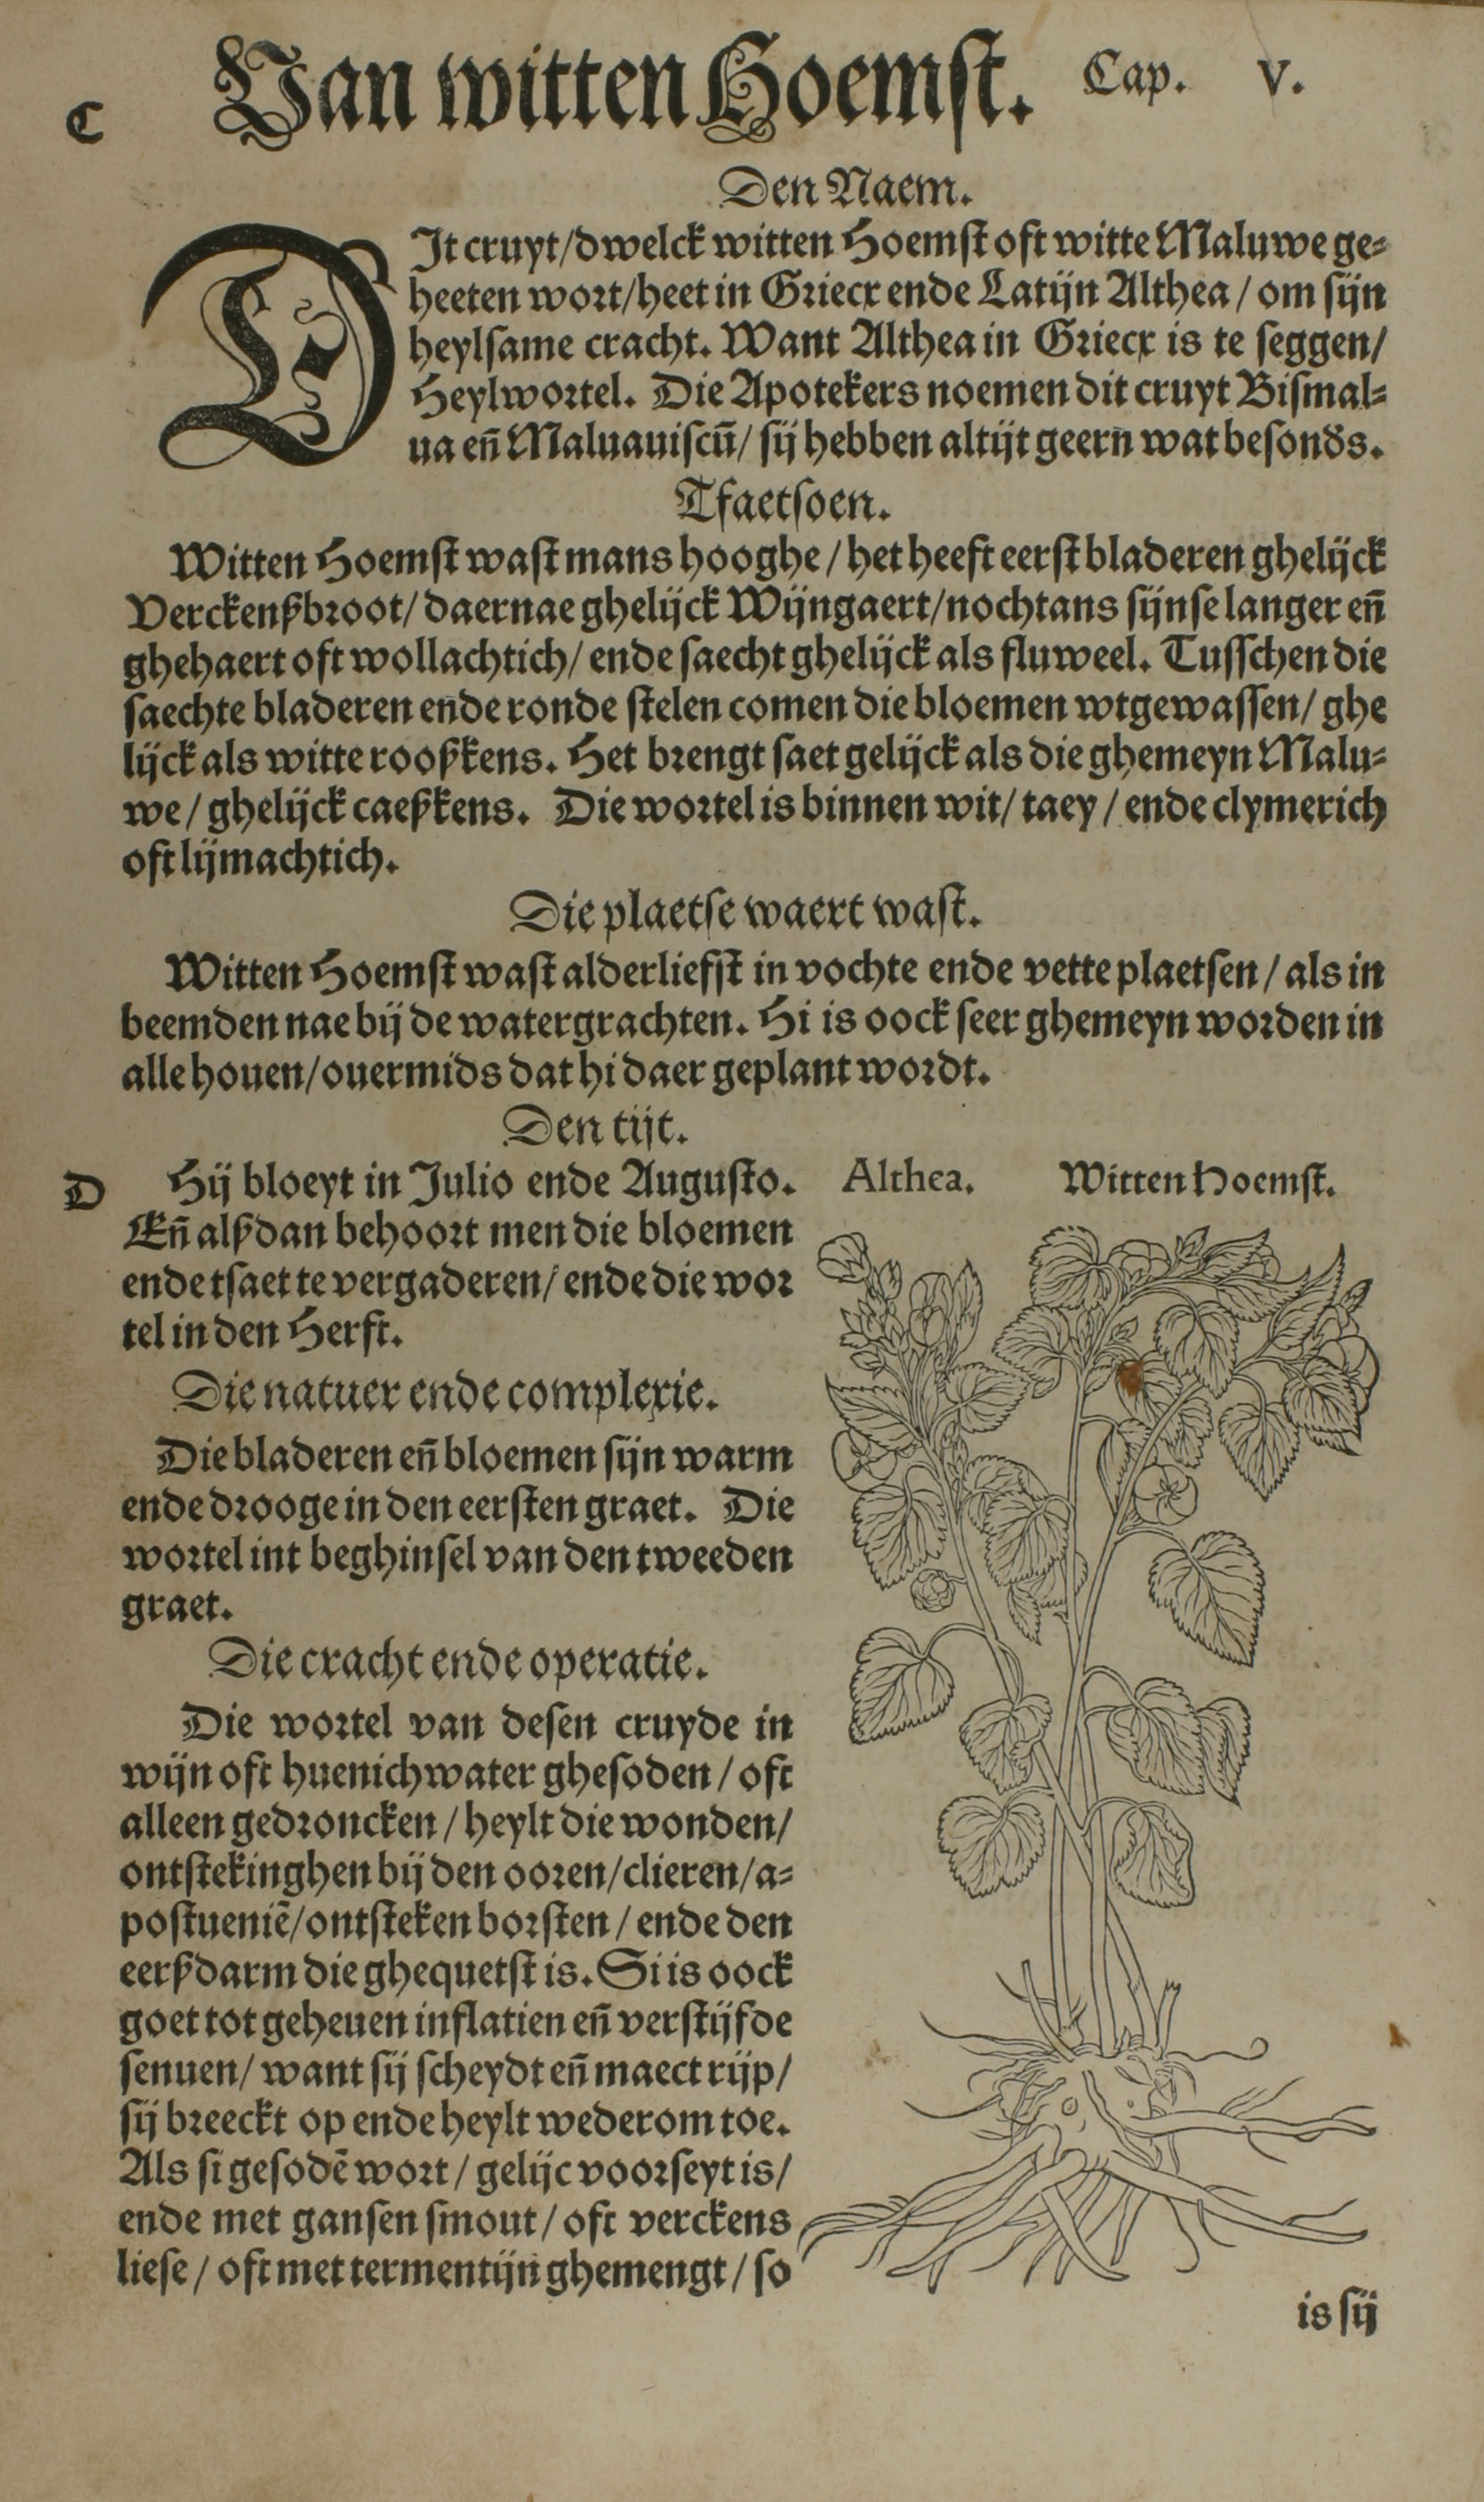 Van witten Hoemst. Cap. V.
C
Den Naem.
DIt cruyt/dwelck witten Hoemst oft witte Maluwe ge⸗
heeten wort/heet in Griecx ende Latijn Althea / om sijn
heylsame cracht. Want Althea in Griecx is te seggen/
Heylwortel. Die Apotekers noemen dit cruyt Bismal⸗
ua eñ Maluauiscū/ sij hebben altijt geern wat besonds.
Tfaetsoen.
Witten Hoemst wast mans hooghe / het heeft eerst bladeren ghelijck
Verckenßbroot/ daernae ghelijck Wijngaert/nochtans sijnse langer eñ
ghehaert oft wollachtich/ ende saecht ghelijck als fluweel. Tusschen die
saechte bladeren ende ronde stelen comen die bloemen wtgewassen/ ghe
lijck als witte rooßkens. Het brengt saet gelijck als die ghemeyn Malu⸗
we / ghelijck caeßkens. Die wortel is binnen wit/ taey / ende clymerich
oft lijmachtich.
Die plaetse waert wast.
Witten Hoemst wast alderliefst in vochte ende vette plaetsen / als in
beemden nae bij de watergrachten. Hi is oock seer ghemeyn worden in
alle houen/ouermids dat hi daer geplant wordt.
Den tijt.
D Hij bloeyt in Julio ende Augusto.
Eñ alßdan behoort men die bloemen
ende tsaet te vergaderen/ ende die wor
tel in den Herfst.
Die natuer ende complexie.
Die bladeren eñ bloemen sijn warm
ende drooge in den eersten graet. Die
wortel int beghinsel van den tweeden
graet.
Die cracht ende operatie.
Die wortel van desen cruyde in
wijn oft huenichwater ghesoden / oft
alleen gedroncken / heylt die wonden/
ontstekinghen bij den ooren/clieren/a⸗
postueniē/ontsteken borsten / ende den
eerßdarm die ghequetst is. Si is oock
goet tot geheuen inflatien eñ verstijfde
senuen/ want sij scheydt eñ maect rijp/
sij breeckt op ende heylt wederom toe.
Als si gesodē wort / gelijc voorseyt is/
ende met gansen smout / oft verckens
liese / oft met termentijn ghemengt / so
Althea. Witten Hoemst.
is sij